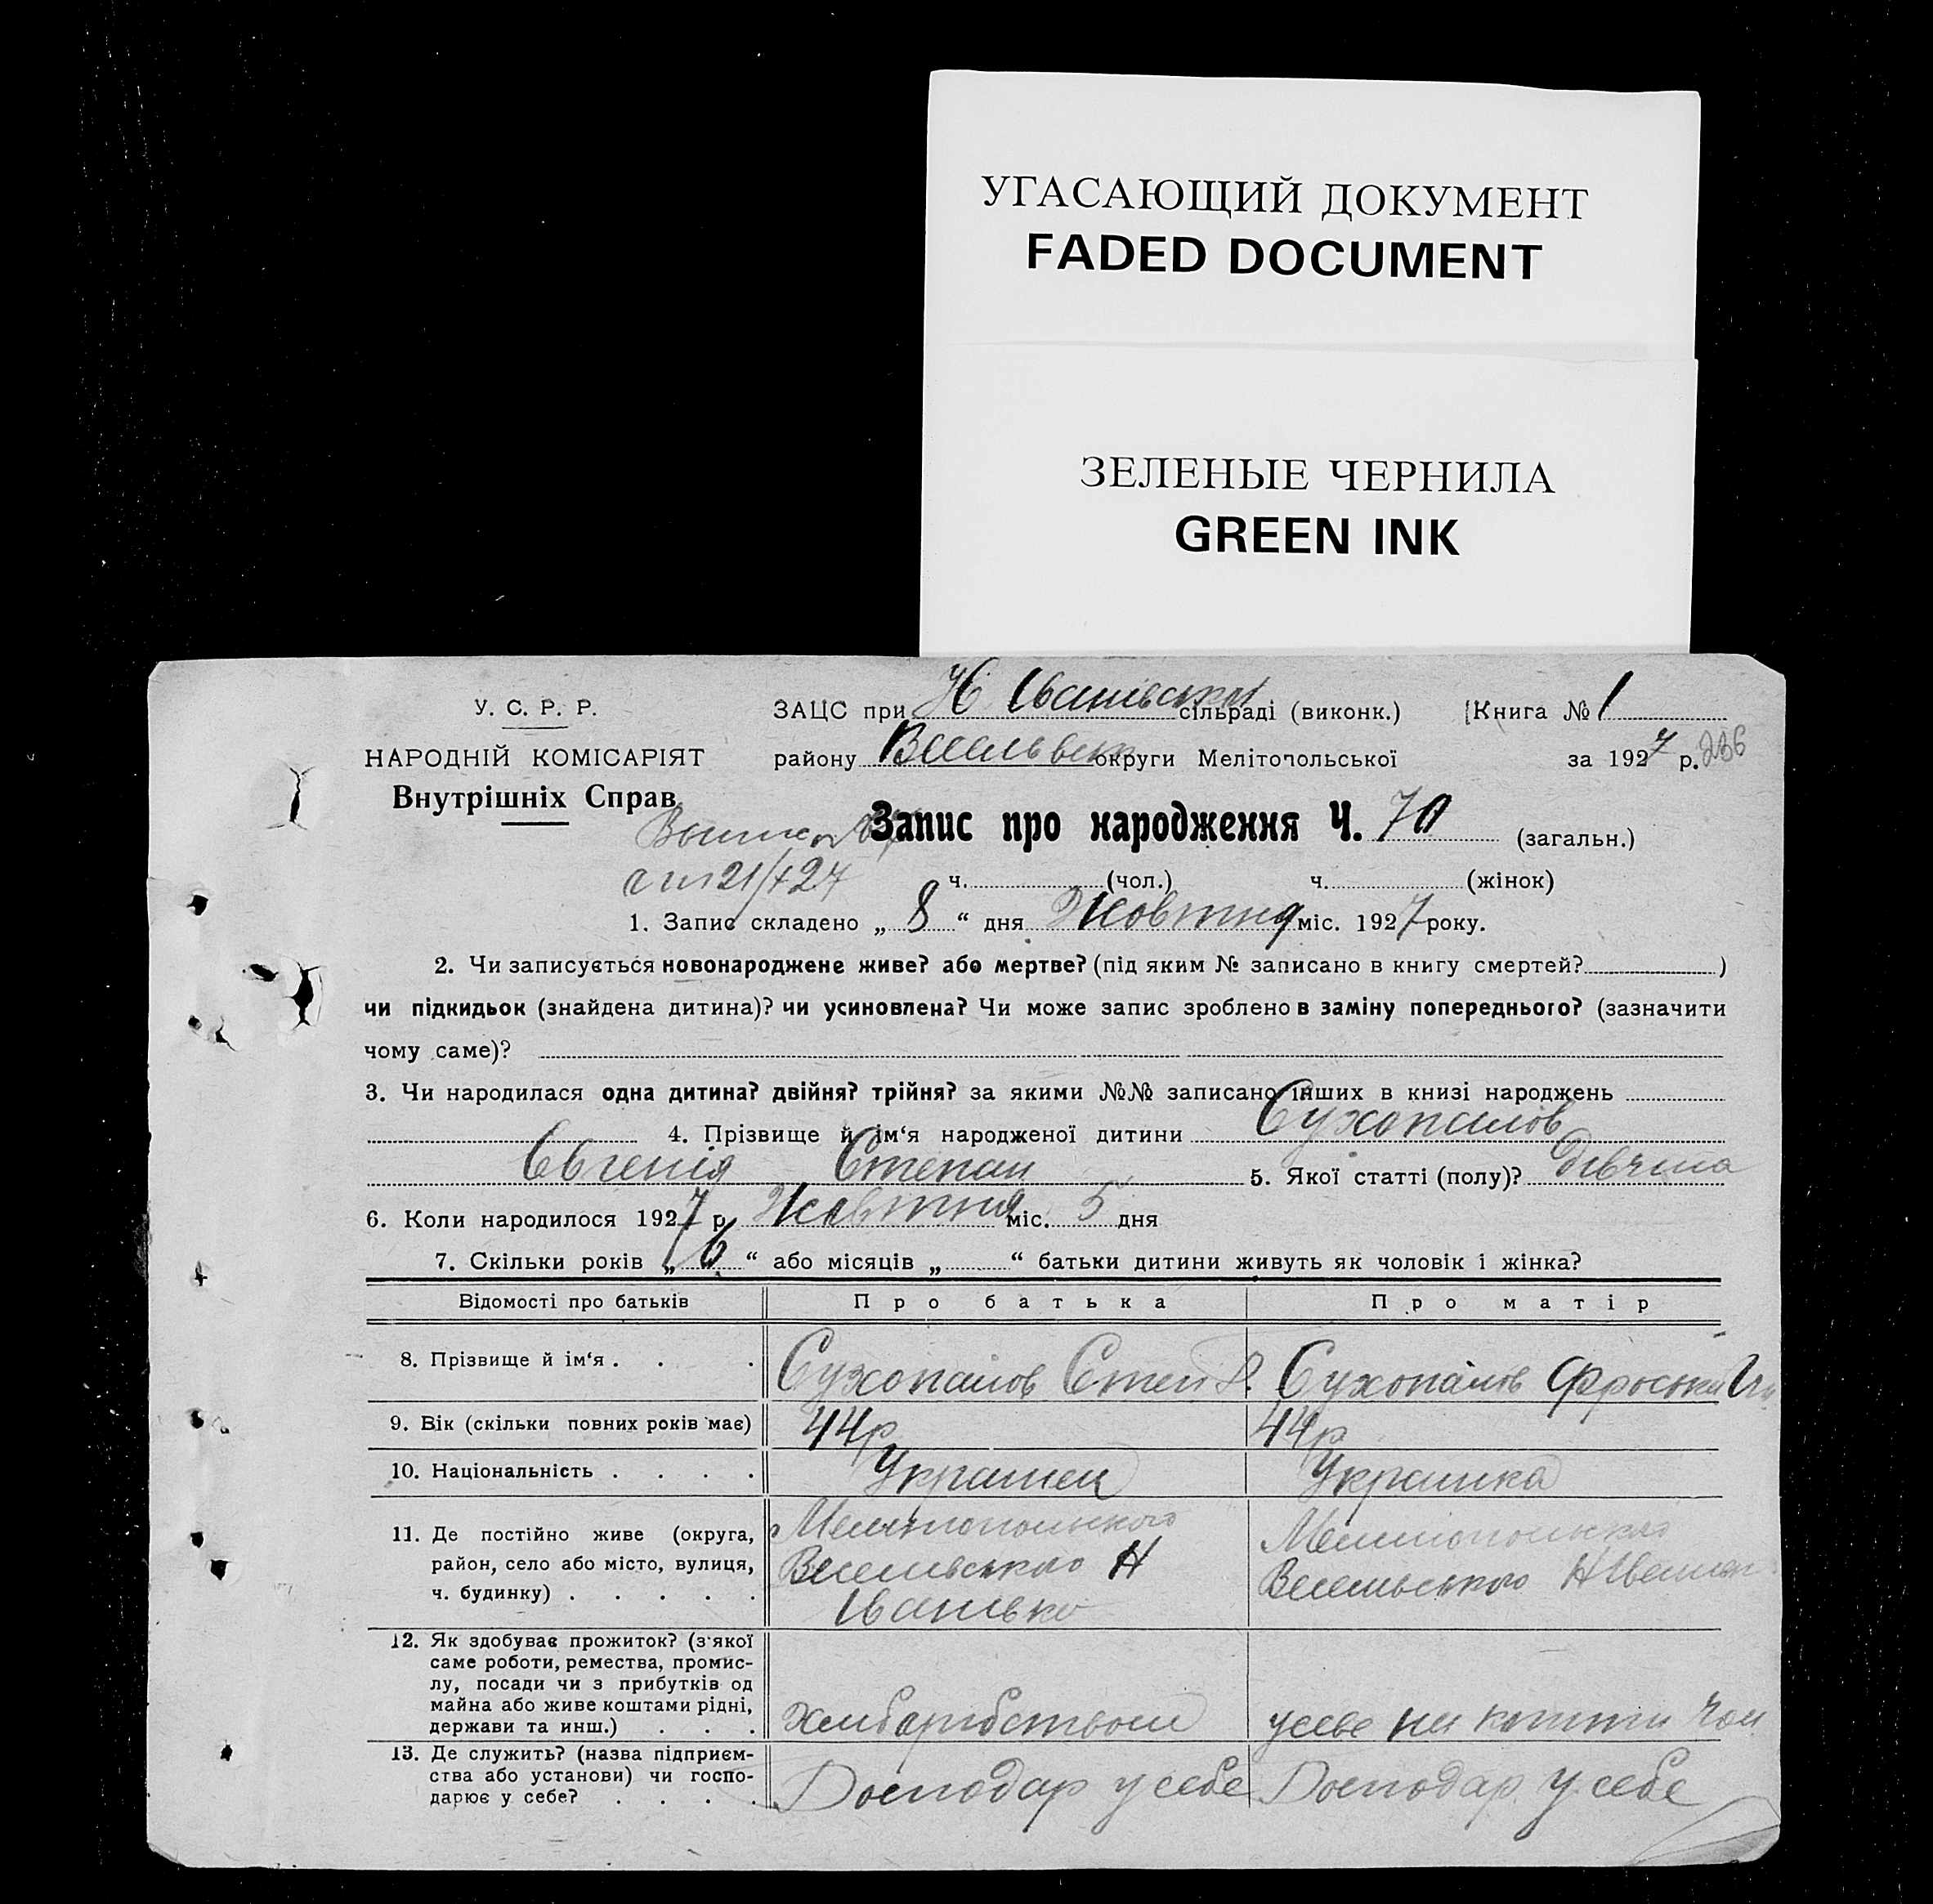 УГАСАЮЩИЙ ДОКУМЕНТ
FADED DOCUMENT
ЗЕЛЕНЫЕ ЧЕРНИЛА
GREEN INK
У. С. Р. Р.
НАРОДНІЙ КОМІСАРІЯТ
Внутрішніх Справ
ЗАЦС при Н Іванівській сільраді (виконк.) Книга № 1
району округи Мелітопольської за 1927 р. 236
Запис про народження Ч. 70 (загальн.)
21/
ч. (чол.) ч. (жінок)
1. Запис складено „ 8 “ дня Жовтня міс. 1927 року.
2. Чи записується новонароджене живе? або мертве? (під яким № записано в книгу смертей? )
чи підкидьок (знайдена дитина)? чи усиновлена? Чи може запис зроблено в заміну попереднього? (зазначити
чому саме)?
3. Чи народилася одна дитина? двійня? трійня? за якими №№ записано інших в книзі народжень
4. Прізвище й ім‘я народженої дитини Сухопалов
Євгенія Степан 5. Якої статті (полу)? дівчина
6. Коли народилося 1927 р. Жовтня міс. 5 дня
7. Скільки років „ “ або місяців „ “ батьки дитини живуть як чоловік і жінка?
Відомості про батьків Про батька Про матір
8. Прізвище й ім‘я . . . Сухопалов Степ Сухопалов Фроська
9. Вік (скільки повних років має) 44р 44р
10. Національність . . . . Украинец Украинка
11. Де постійно живе (округа, Мелітопольського Мелітопольского
район, село або місто, вулиця, Веселівського Н Веселівського Н Іванів
ч. будинку) . . . . . Іванівка
12. Як здобуває прожиток? (з'якої
саме роботи, ремества, промис-
лу, посади чи з прибутків од
майна або живе коштами рідні,
держави та инш.) . . . хліборобством на кошти чол
13. Де служить? (назва підприєм-
ства або установи) чи госпо- Господар у себе Господар у себе
дарює у себе? . . . .